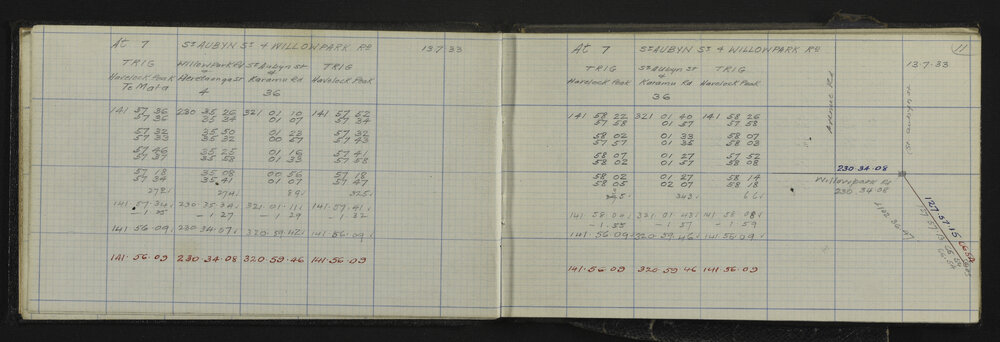 At 7 St AUBYN St & WILLOWPARK RD 13.7.33
TRIG Willow Park Rd St Aubyn St TRIG
Havelock Peak & & Havelock Peak
To Mata Heretaunga St Karamu Rd
4 36
141 57 36 230 35 26 321 01 10 141 57 52
57 36 35 34 01 07 57 34
57 32 35 50 01 23 57 32
57 33 35 32 00 57 57 43
57 46 35 25 01 16 57 41
57 37 35 58 01 33 57 58
57 18 35 08 00 56 57 18
57 34 35 41 01 07 57 47
278 274 89 325
141.57.34 230.35.34 321.01.11 141.57.41
-1 25 -1 27 -1 29 -1 32
141.56.09 230.34.07 320.59.42 141.56.09
141.56.09 230.34.08 320.59.46 141.56.09
11
At 7 St AUBYN St & WILLOWPARK RD
13.7.33
TRIG St Aubyn St TRIG
Havelock Peak & Havelock Peak
Karamu Rd
36
141 58 22 321 01 40 141 58 26
57 58 01 57 57 58
58 02 01 33 58 07
57 57 01 35 58 03
58 07 01 27 57 52
58 02 01 57 58 08
58 02 01 27 58 14
58 05 02 07 58 18
343 66
141 58 04 321 01 43 141 58 08
-1.55 -1 57 -1 59
141.56.09 320.59.46 141.56.09
141.56.09 320.59.46 141.56.09
230.34.08
Willowpark Rd
230 34 08
127.57.15